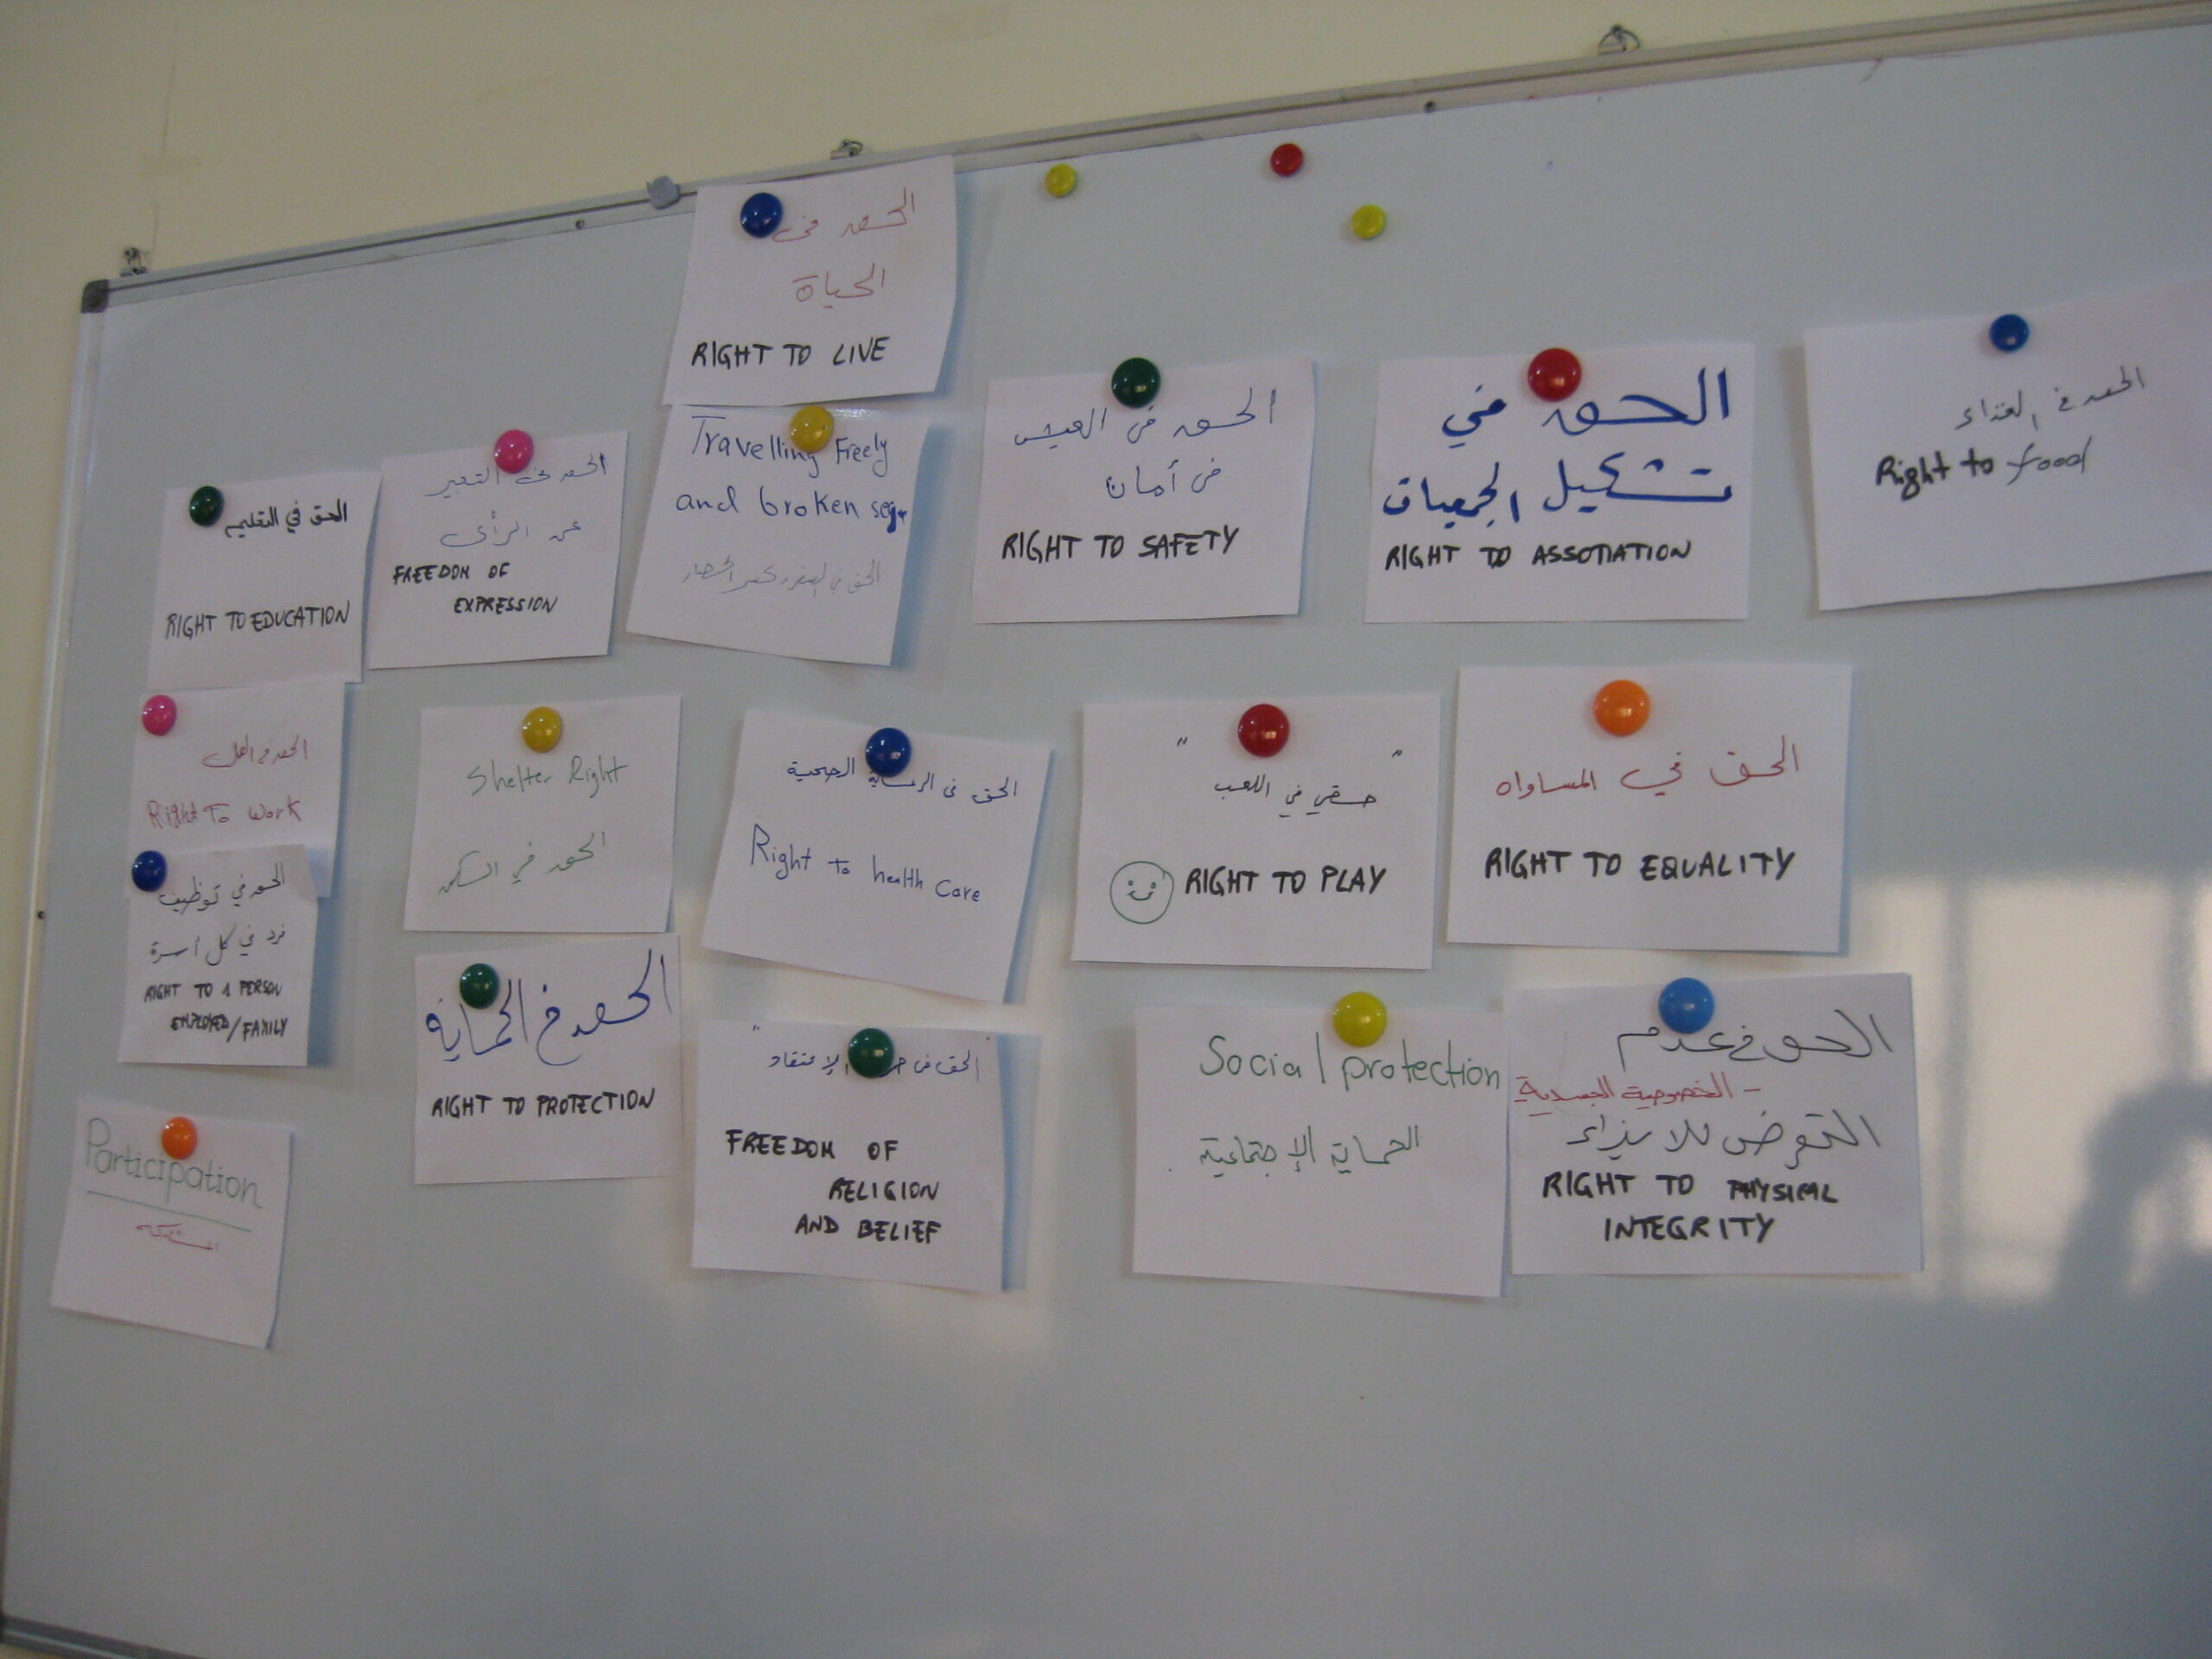 الحق في
الحياة
RIGHT TO LIVE
الحق في التعليم
RIGHT TO EDUCATION
الحق في التعبير
عن الرأى
FREEDOM OF
EXPRESSION
Travelling Freely
and broken
الحق في
الحق فى العيش
فى أمان
RIGHT TO SAFETY
الحق في
تشكيل الجمعيات
RIGHT TO ASSOTIATION
الحق في الغذاء
Right to food
الحق في العمل
Right To Work
Shelter Right
الحق في السكن
الحق فى الرعاية الصحية
Right To health Care
" "
حقي في اللعب
RIGHT TO PLAY
الحق في المساواه
RIGHT TO EQUALITY
الحق في توظيف
فرد في كل أسرة
RIGHT TO 1 PERSON
EMPLOYED/FAMILY
الحق في الحماية
RIGHT TO PROTECTION
الحق فى الإعتقاد
FREEDOM OF
RELIGION
AND BELIEF
Social protection
الحماية الإجتماعية
الحق في عدم
- الخصوصية الجسدية
التعرض للايذاء
RIGHT TO PHYSICAL
INTEGRITY
Participation
المشاركة